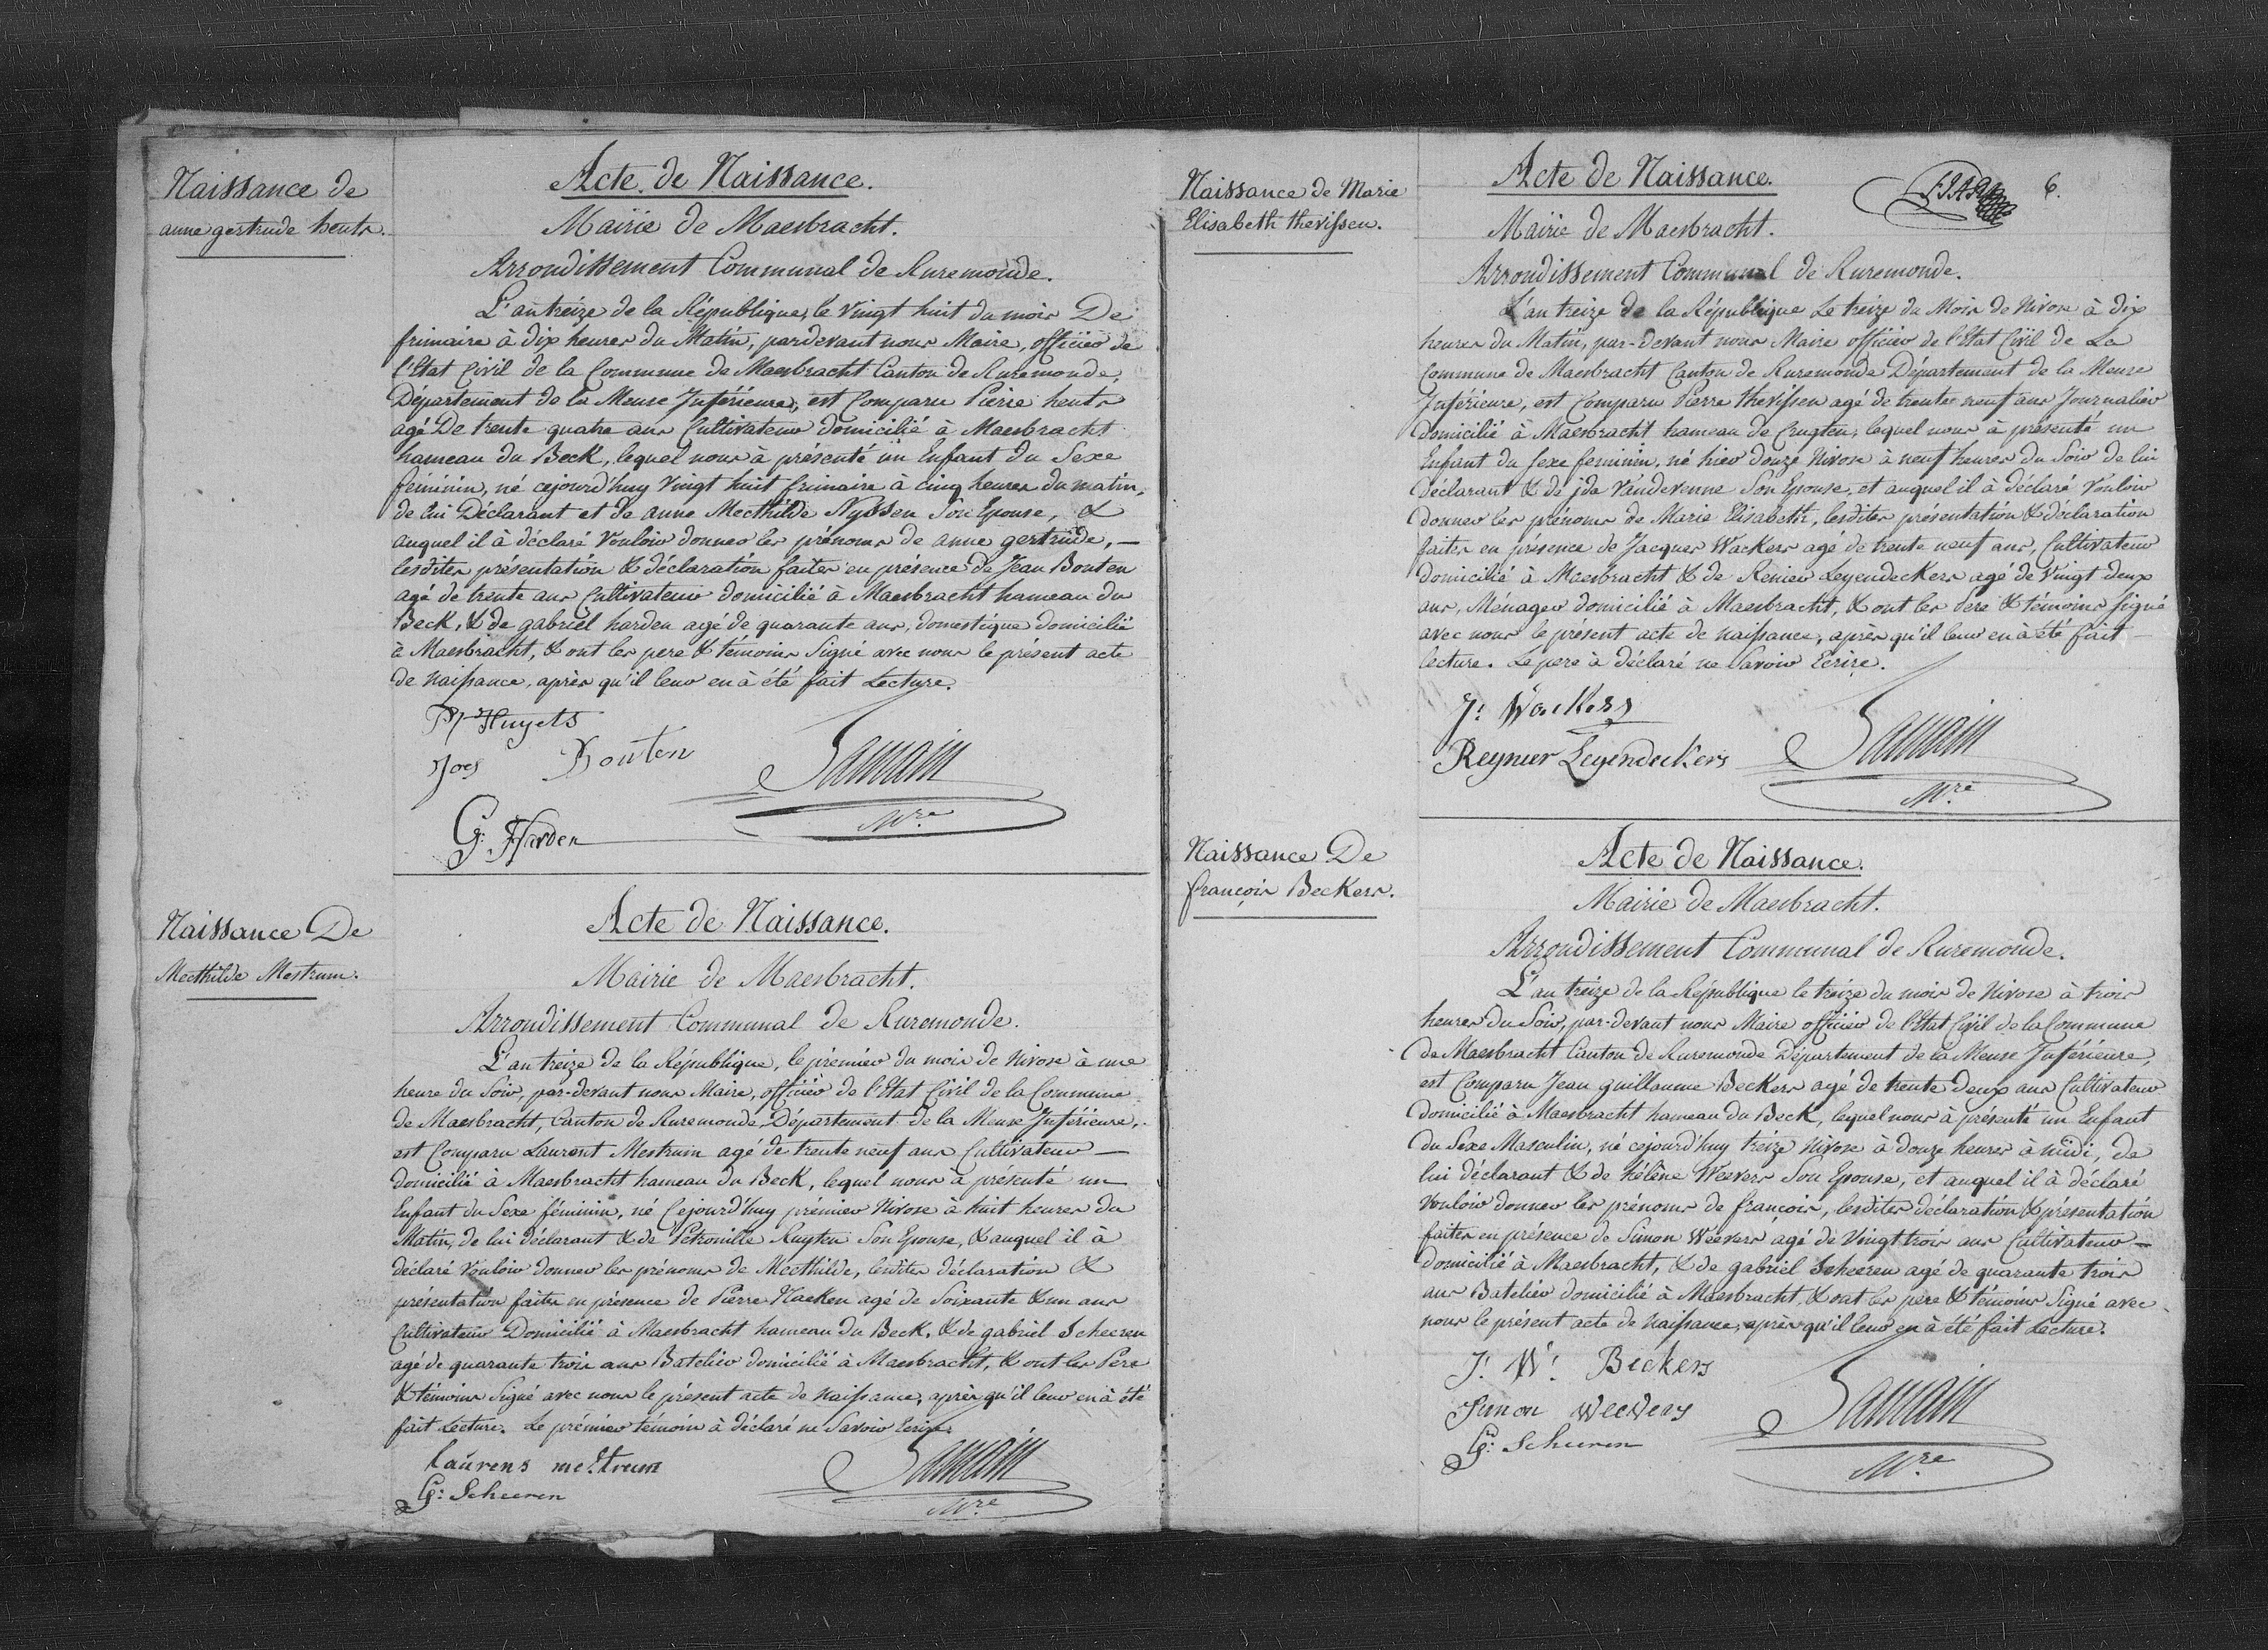 Naissance de
anne gertrude heuts.
Acte de Naissance.
Mairie de Maesbracht.
Arrondissement Communal de Ruremonde.
L'an treize de la République, le vingt huit du mois De
frimaire à dix heures du Matin, pardevant nous Maire, officier de
l'Etat Civil de la Commune de Maesbracht Canton de Ruremonde,
Département de la Meuse Inférieure, est Comparu Pierre heuts
agé De trente quatre ans Cultivateur domicilié à Maesbracht
hameau du Beck, lequel nous à présenté un Enfant du Sexe
feminin, né cejourd'huy vingt huit frimaire à cinq heures du matin,
de lui Déclarant et de anne Mecthilde Nyssen Son Epouse, &
auquel il à déclaré Vouloir donner les prénoms de anne gertrude, —
lesdites présentation & déclaration faites en présence de Jean Bouten
agé de trente ans Cultivateur domicilié à Maesbracht hameau du
Beck, & de gabriel harden agé de quarante ans, domestique domicilié
à Maesbracht, & ont les pere & témoins Signé avec nous le présent acte
de naissance, après qu'il leur en à été fait Lecture.
P. Huyets
Joes Bouten
Samain
Mre
G: Harden
Naissance De
Mecthilde Mestrum.
Acte de Naissance.
Mairie de Maesbracht.
Arrondissement Communal de Ruremonde.
L'an treize de la République, le prémier du mois de Nivose à une
heure du Soir, par-devant nous Maire, officier de l'Etat Civil de la Commune
de Maesbracht, Canton de Ruremonde Département de la Meuse Inférieure,
est Comparu Laurent Mestrum agé de trente neuf ans Cultivateur —
domicilié à Maesbracht hameau du Beck, lequel nous à présenté un
Enfant du Sexe féminin, né Cejourd'huy prémier Nivose à huit heures du
Matin, de lui déclarant & de Pétronille Ruyten Son Epouse, & auquel il à
déclaré Vouloir donner les prénoms de Mecthilde, lesdites déclaration &
présentation faites en présence de Pierre Naeken agé de Soixante & un ans
Cultivateur Domicilié à Maesbracht hameau du Beck, & de gabriel Scheeren
agé de quarante trois ans Batelier domicilié à Maesbracht, & ont les Pere
& témoins Signé avec nous le présent acte de naissance, après qu'il leur en à été
fait Lecture. Le prémier témoin à déclaré ne Savoir Ecrire.
laurens mestrum
G: Scheeren
Samain
Mre
Naissance de Marie
Elisabeth thevissen.
Acte de Naissance.
6.
Mairie de Maesbracht.
Arrondissement Communal de Ruremonde.
L'an treize de la République Le treize du Mois de Nivose à dix
heures du Matin, par-devant nous Maire officier de l'Etat Civil de La
Commune de Maesbracht Canton de Ruremonde Département de la Meuse
Inférieure, est Comparu Pierre thevissen agé de trente neuf ans Journalier
domicilié à Maesbracht hameau de Crugten, lequel nous à présenté un
Enfant du sexe feminin, né hier douze Nivose à neuf heures du Soir de lui
Déclarant & de jda Vandevenne Son Epouse, et auquel il à déclaré Vouloir
donner les prénoms de Marie Elisabeth, lesdites présentation & déclaration
faites en présence de Jacques Wackers agé de trente neuf ans, Cultivateur
domicilié à Maesbracht & de Renier Leyendeckers agé de Vingt deux
ans, Ménager domicilié à Maesbracht, & ont les Pere & témoins signé
avec nous le présent acte de naissance, après qu'il leur en à été fait —
lecture. Le pere à déclaré ne Savoir Ecrire.
J: Wackers
Reynier Leyendeckers
Samain
Mre
Naissance De
françois Beckers.
Acte de Naissance.
Mairie de Maesbracht.
Arrondissement Communal de Ruremonde.
L'an treize de la République le treize du mois de Nivose à trois
heures du Soir, par-devant nous Maire officier de l'Etat Civil de la Commune
de Maesbracht Canton de Ruremonde Département de la Meuse Inférieure,
est Comparu Jean guillaume Beckers agé de trente deux ans Cultivateur
domicilié à Maesbracht hameau du Beck, lequel nous à présenté un Enfant
du Sexe Masculin, né cejourd'huy treize Nivose à douze heures à midi, de
lui déclarant & de hélène Weevers Son Epouse, et auquel il à déclaré
Vouloir donner les prénoms de françois, lesdites déclaration & présentation
faites en présence de Simon Weevers agé de Vingt trois ans Cultivateur —
domicilié à Maesbracht, & de gabriel Scheeren agé de quarante trois
ans Batelier domicilié à Maesbracht, & ont les pere & témoins Signé avec
nous le présent acte de naissance, après qu'il leur en à été fait Lecture.
J: W: Beckers
Simon Weevers
G: Scheeren
Samain
Mre